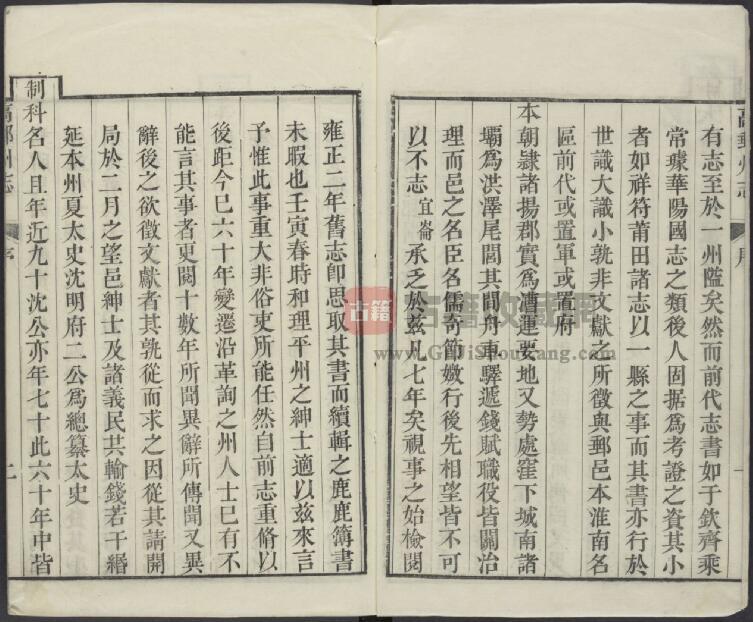 有志至於一州隘矣然而前代志書如于欽齊乘
常璩華陽國志之類後人固据為考證之資其小
者如祥符莆田諸志以一縣之事而其書亦行於
世識大識小孰非文獻之所徵與郵邑本淮南名
區前代或置軍或置府
本朝隷諸揚郡實為漕運要地又勢處窪下城南諸
壩為洪澤尾閭其間舟車驛遞錢賦職役皆關治
理而邑之名臣名儒奇節嫩行後先相望皆不可
以不志宜崙承乏於兹凡七年矣視事之始檢閱
高郵州志
序
一
雍正二年舊志卽思取其書而續輯之鹿鹿簿書
未暇也壬寅春時和理平州之紳士適以兹來言
予惟此事重大非俗吏所能任然自前志重脩以
後距今已六十年變遷沿革詢之州人士已有不
能言其事者更閱十數年所聞異辭所傳聞又異
辭後之欲徵文獻者其孰從而求之因從其請開
局於二月之望邑紳士及諸義民共輸錢若干緡
延本州夏太史沈明府二公為總纂太史
制科名人且年近九十沈公亦年七十此六十年中皆
高郵州志
序
二
古籍
古籍收藏网
www.GuJiShouCang.com